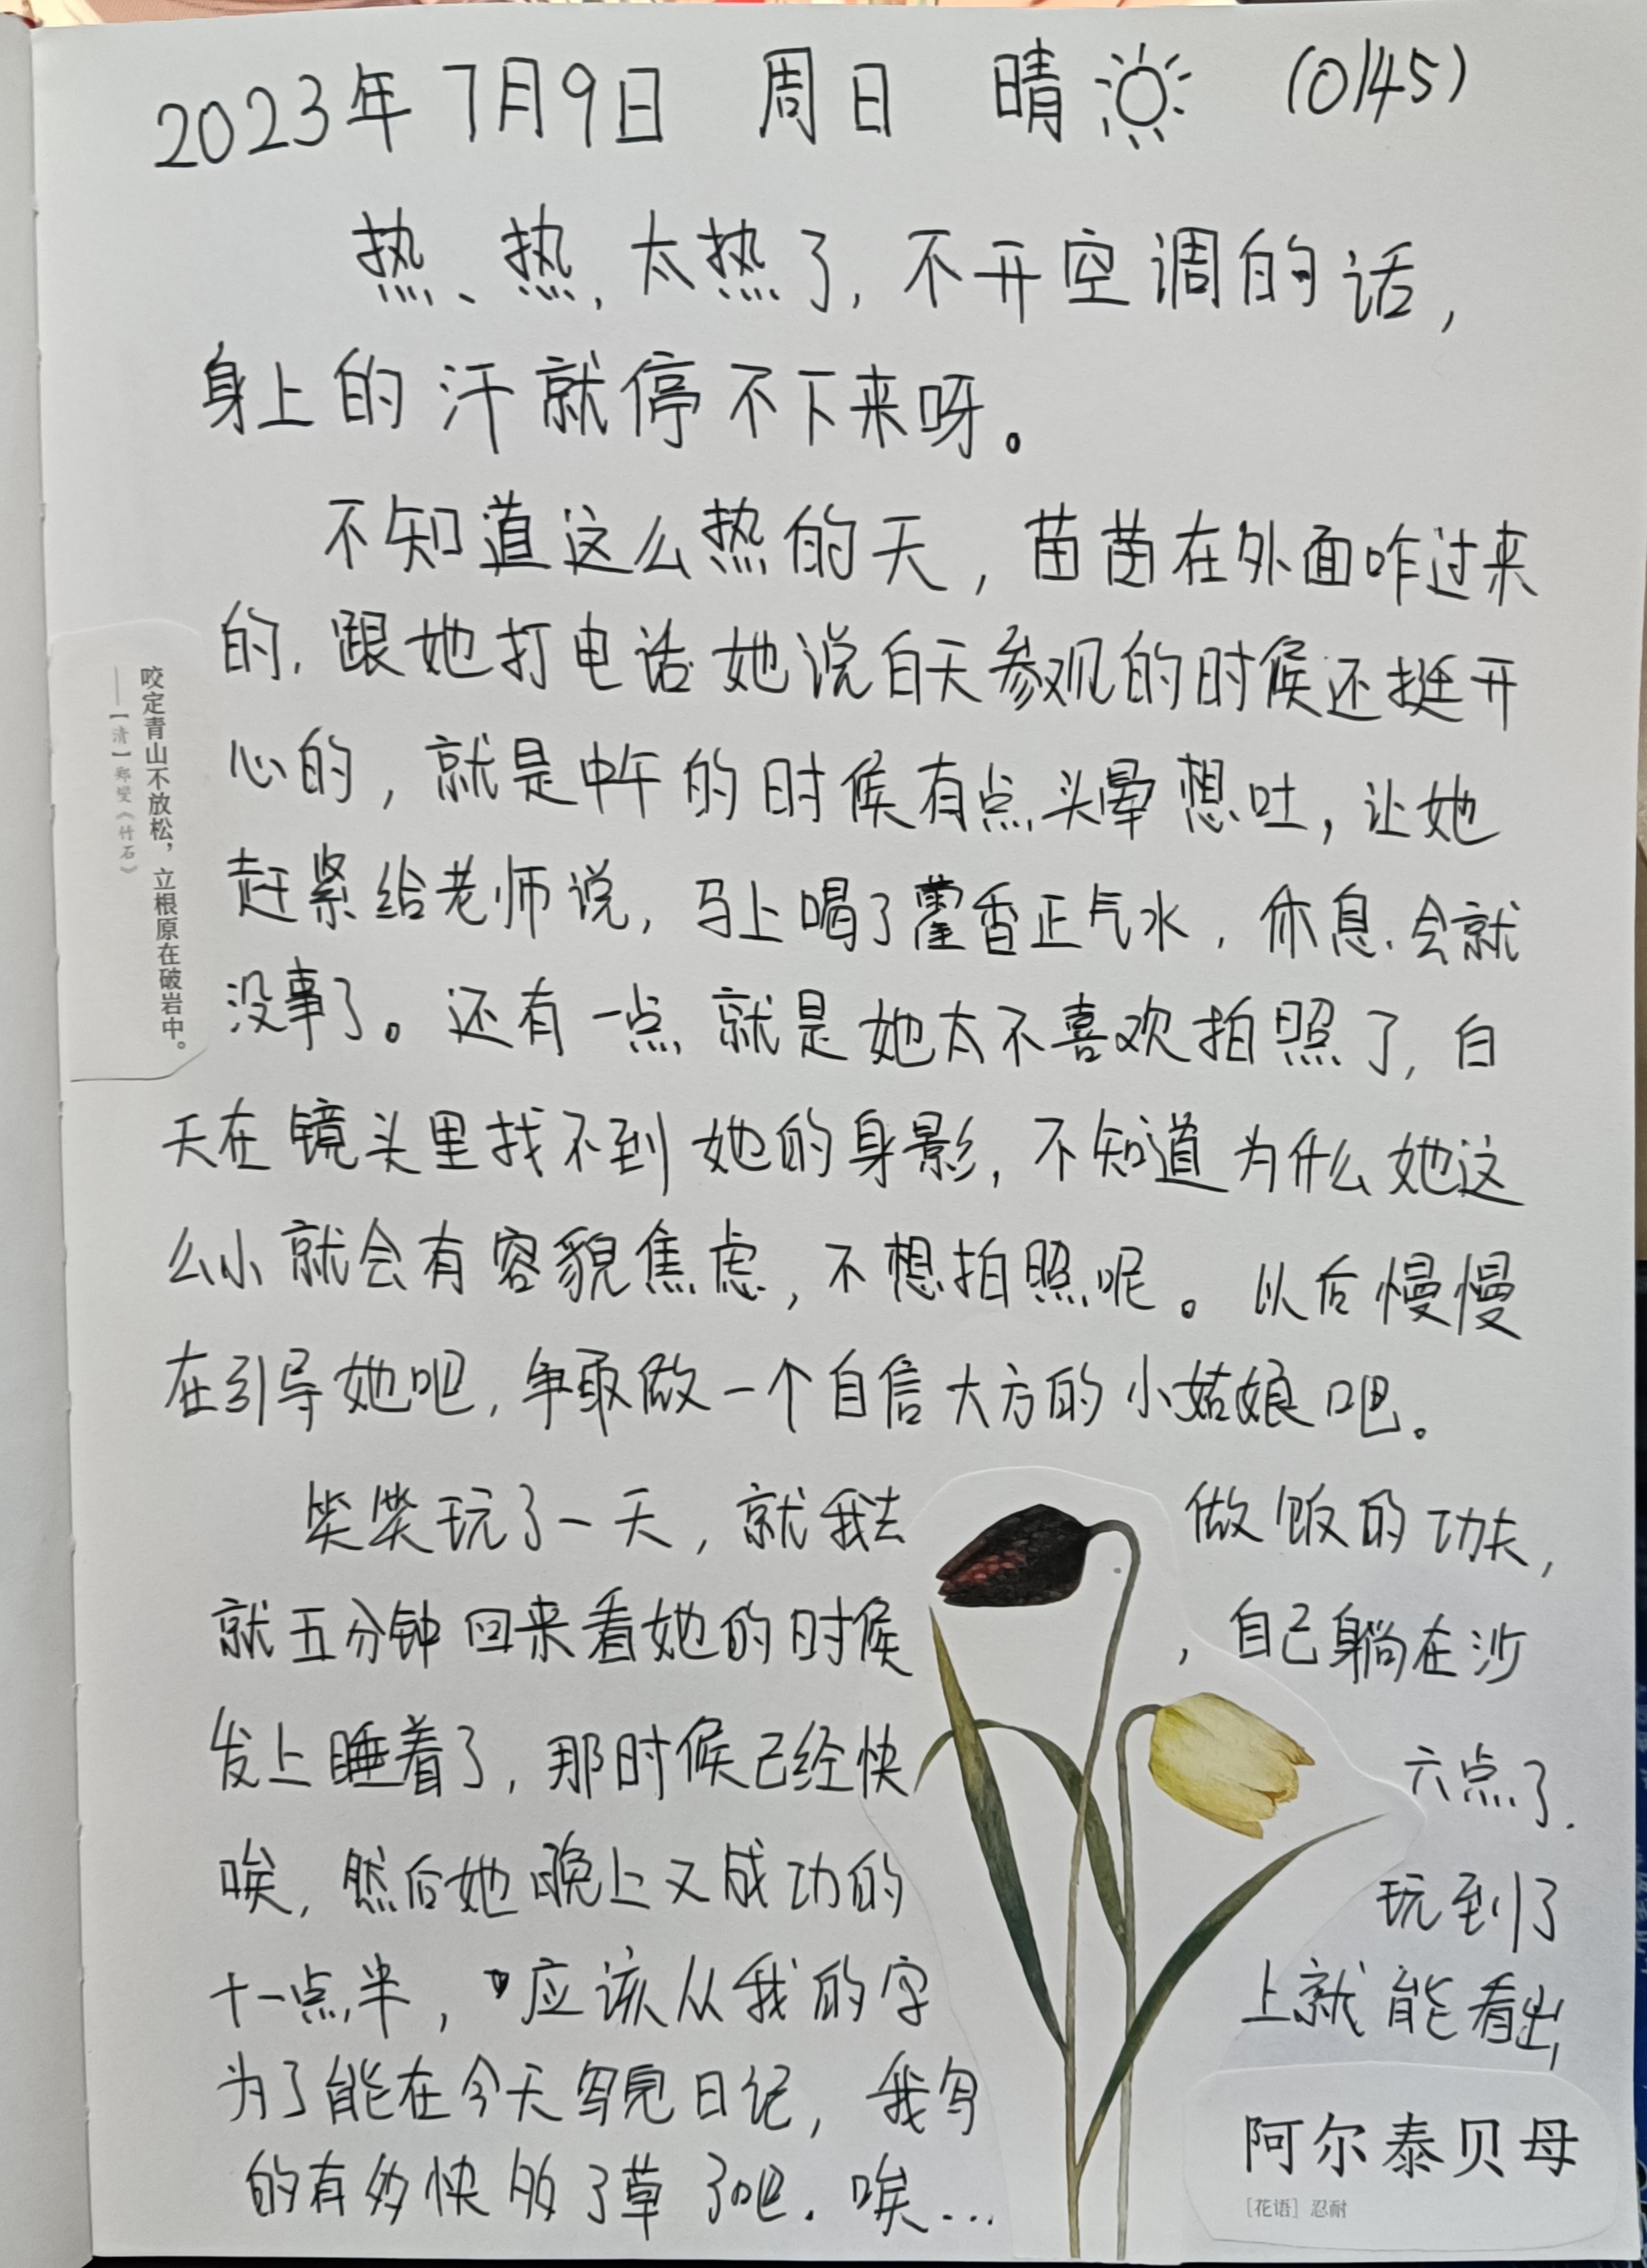 2023年7月9日 周日 晴 (0145)
热、热,太热了,不开空调的话,
身上的汗就停不下来呀。
不知道这么热的天,苗苗在外面咋过来
的,跟她打电话她说白天参观的时候还挺开
心的,就是中午的时候有点头晕想吐,让她
赶紧给老师说,马上喝了藿香正气水,休息会就
没事了。还有一点就是她太不喜欢拍照了,白
天在镜头里找不到她的身影,不知道为什么她这
么小就会有容貌焦虑,不想拍照呢。以后慢慢
在引导她吧,争取做一个自信大方的小姑娘吧。
笑笑玩了一天,就我去做饭的功夫,
就五分钟回来看她的时候,自己躺在沙
发上睡着了,那时候已经快六点了.
唉,然后她晚上又成功的玩到了
十一点半,应该从我的字上就能看出,
为了能在今天写完日记,我写
的有多快多了草了吧.唉...
咬定青山不放松,立根原在破岩中。
——[清]郑燮《竹石》
阿尔泰贝母
[花语] 忍耐